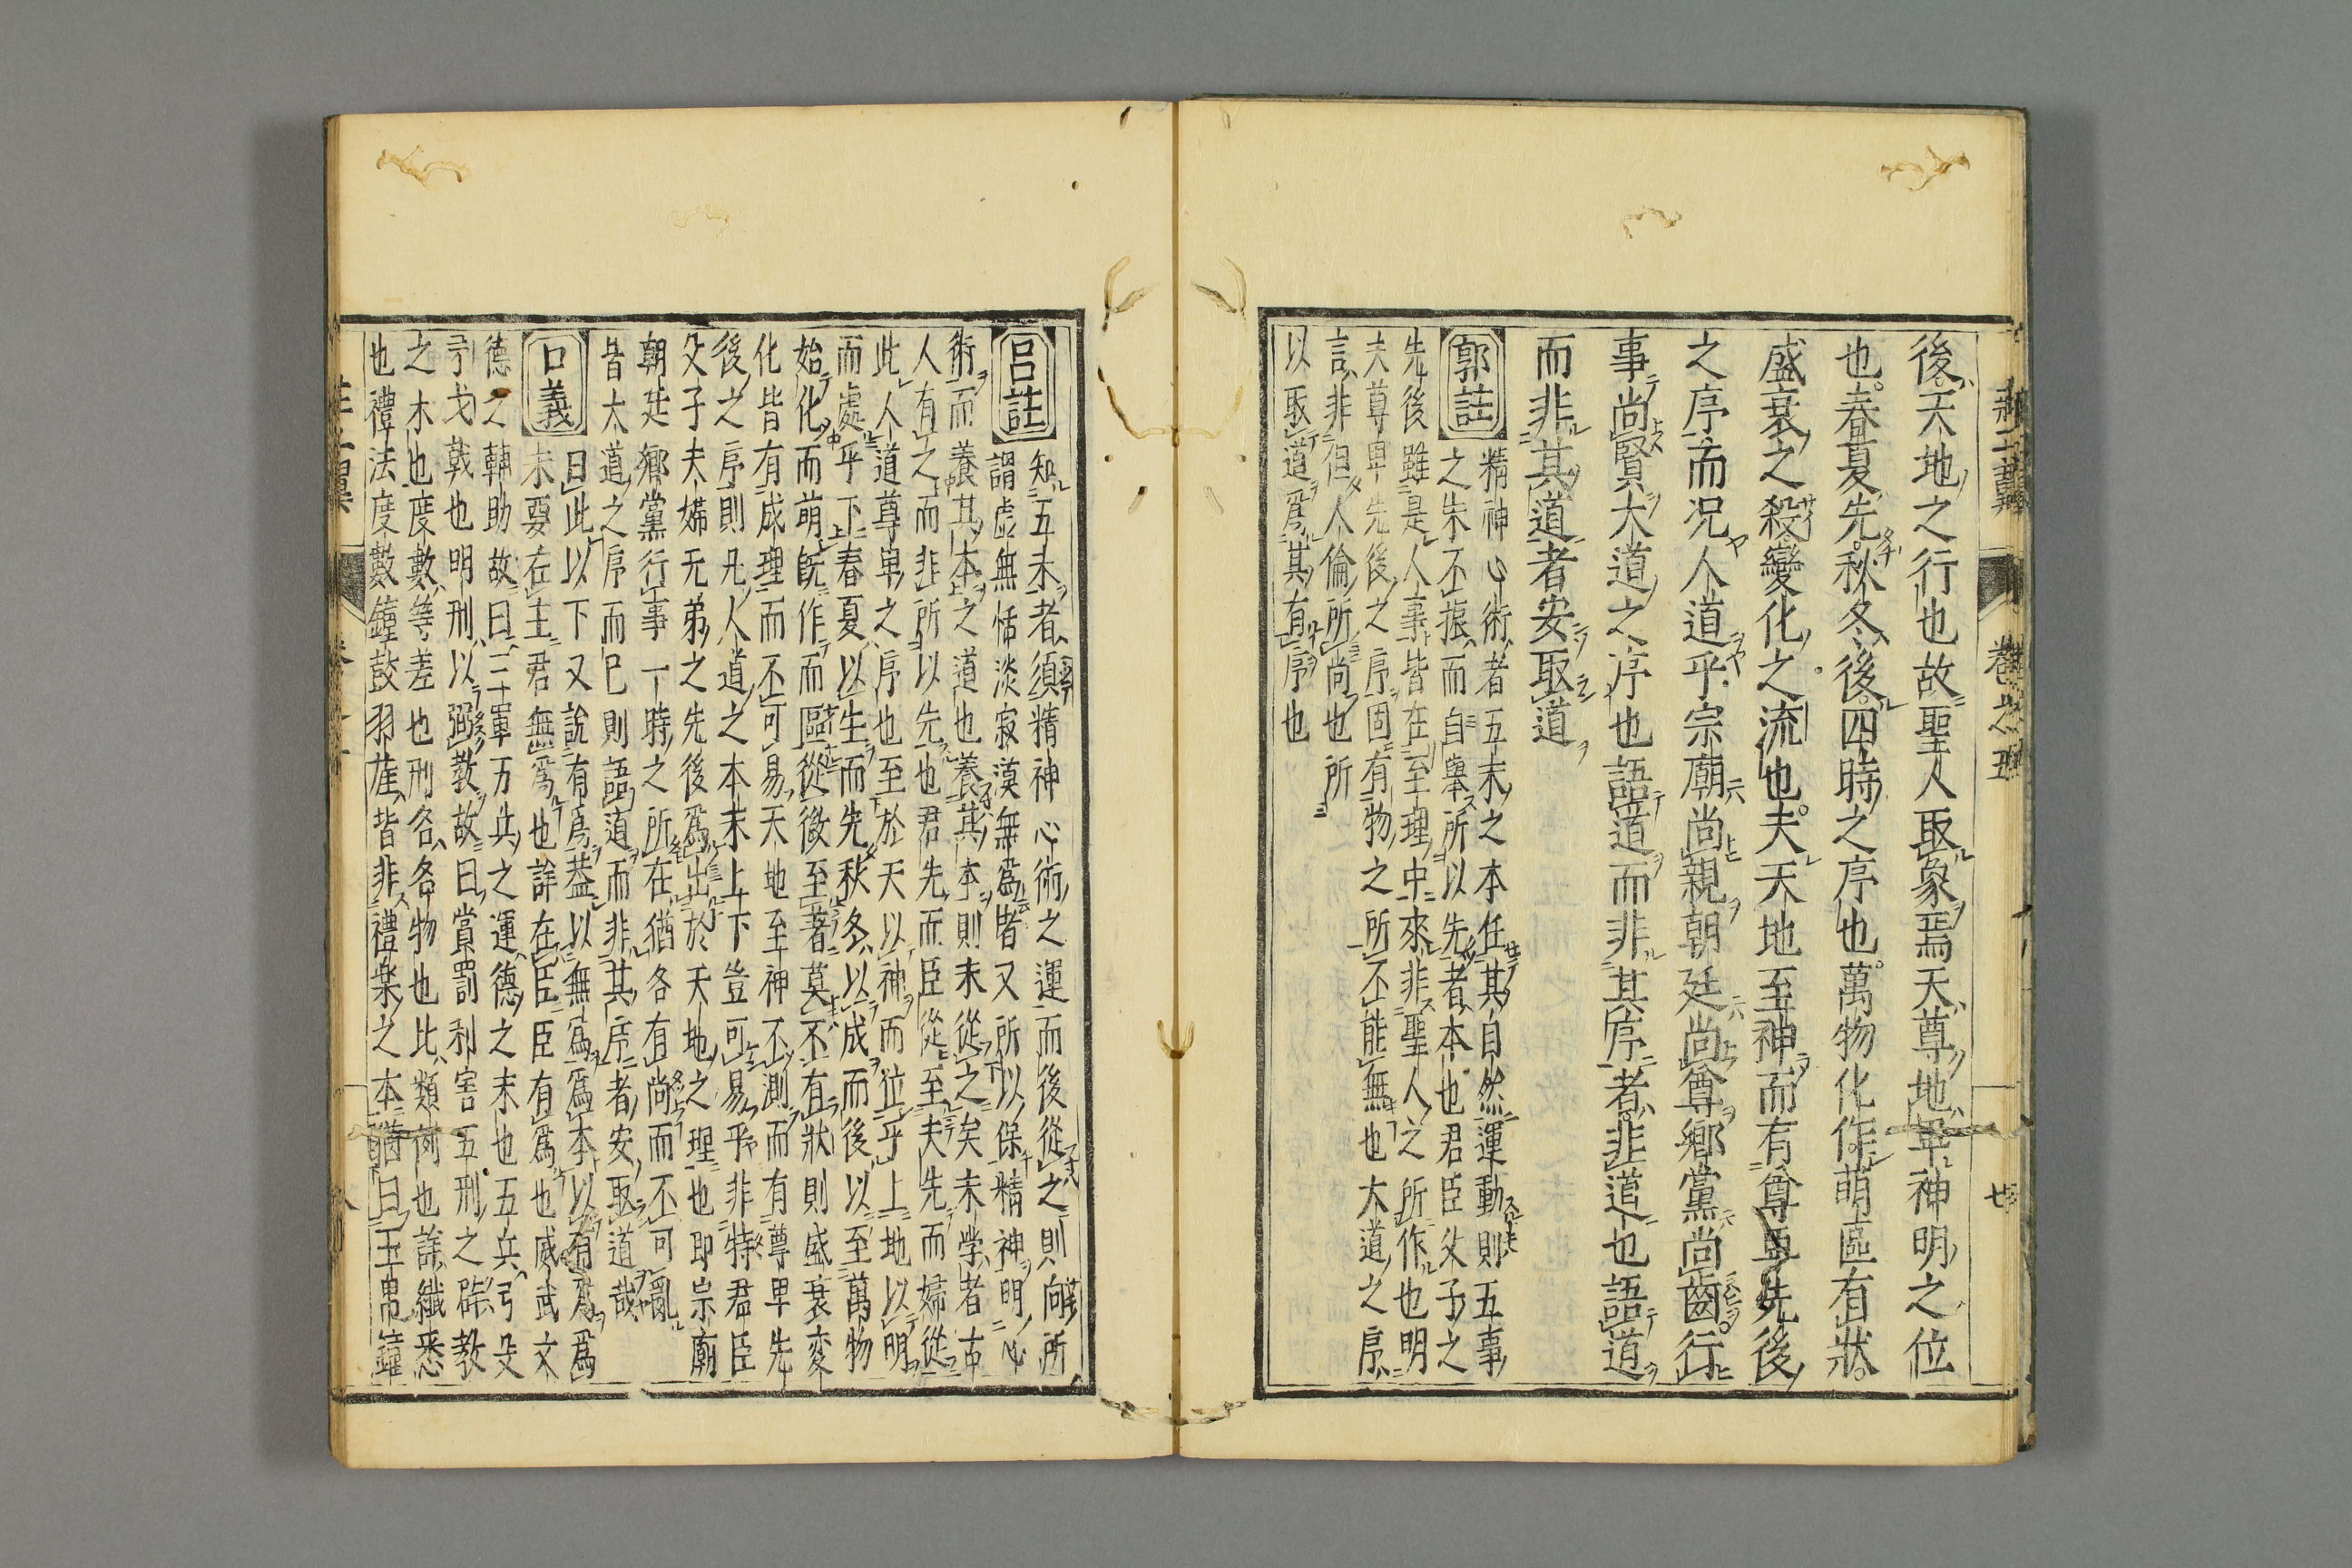 後天地之行也故聖人取象焉天尊地卑神明之位
也春夏先秋冬後四時之序也萬物化作萌區有狀
盛衰之殺變化之流也夫天地至神而有尊卑先後
之序而况人道乎宗廟尚親朝廷尚尊鄉黨尚齒行
事尚賢大道之序也語道而非其序者非道也語道
而非其道者安取道
郭註
精神心術者五末之本任其自然運動則五事
之朱不振而自舉所以先者本也君臣父子之
先後雖是人事皆在至理中來非聖人之所作也明
夫尊卑先後之序固有物之所不能無也大道之序
言非但人倫所尚也所
以取道爲其有序也
呂註
知五末者須精神心術之運而後從之則向所
謂虛無恬淡寂漠無爲者又所以保精神明心
術而養其本之道也養其本則末從之矣末學者古
人有之而非所以先也君先而臣從至夫先而婦從
此人道尊卑之序也至於天以神而位乎上地以明
而處乎下春夏以生而先秋冬以成而後以至萬物
始化而萌旣作而區從微至著莫不有狀則盛衰変
化皆有成理而不可易天地至神不測而有尊卑先
後之序則凡人道之本末上下豈可易乎非特君臣
父子夫婦兄弟之先後爲出於天地之理也即宗廟
朝廷鄉黨行事一時之所在猶各有尚而不可亂
皆大道之序而已則語道而非其序者安取道哉
口義
曰此以下又說有爲蓋以無爲爲本以有爲爲
末要在主君無爲也詳在臣臣有爲也威武文
德之輔助故曰三軍五兵之運德之末也五兵弓殳
矛戈戟也明刑以弼教故曰賞罰利害五刑之辟教
之末也度數等差也刑名名物也比類例也詳纖悉
也禮法度數鐘鼓羽旄皆非禮樂之本猶曰玉帛鐘